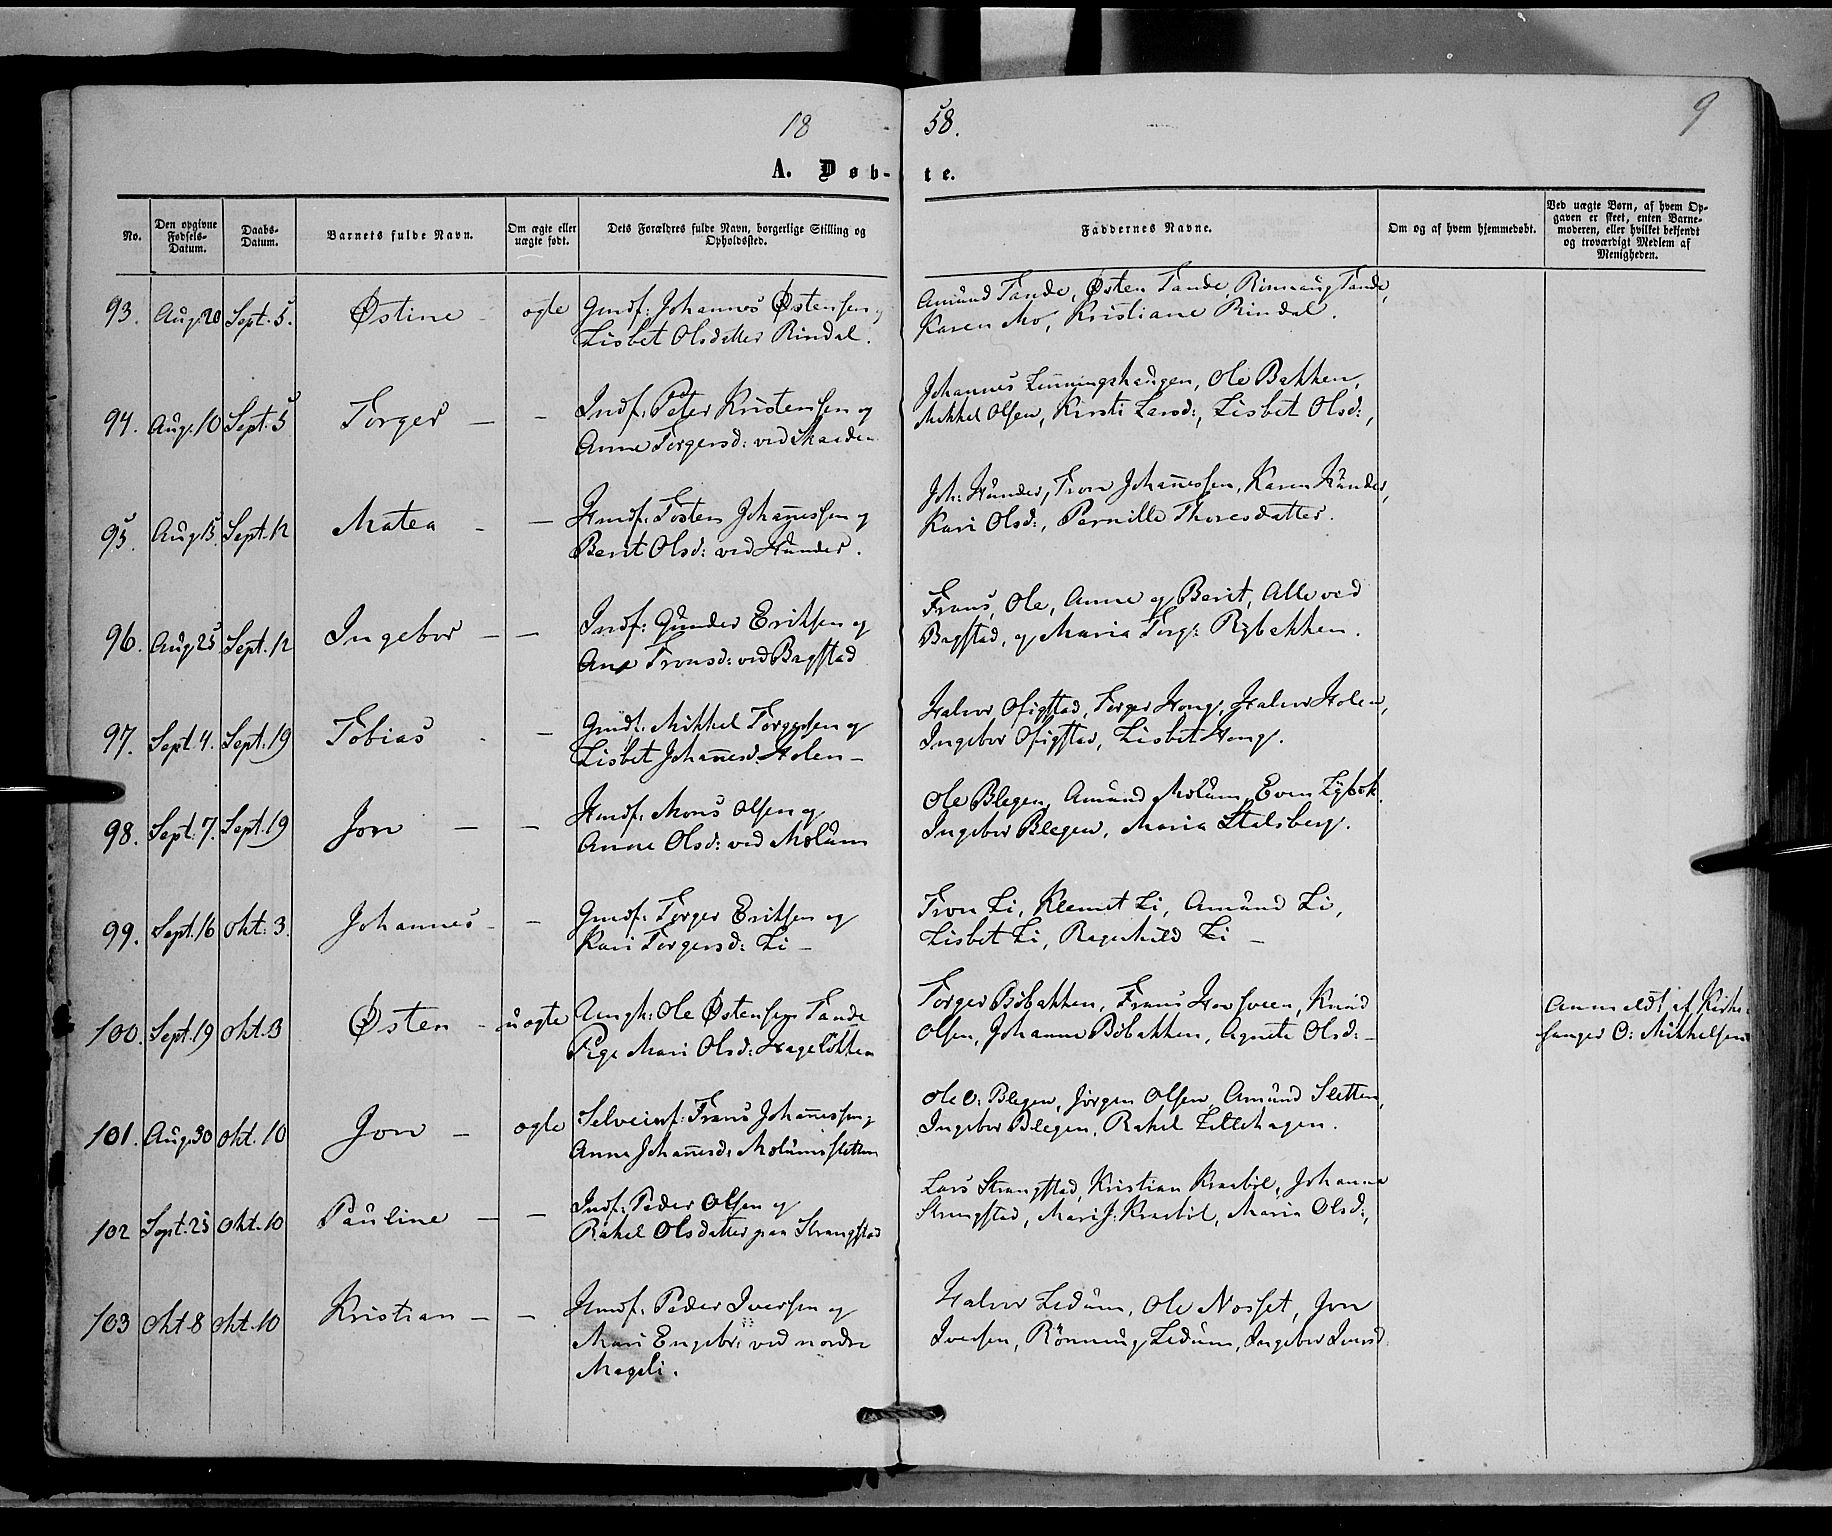 18 58. 9
A. Døb- te.
No. | Den opgivne Fødsels-Datum. | Daabs-Datum. | Barnets fulde Navn. | Om ægte eller uægte født. | Dets Forældres fulde Navn, borgerlige Stilling og Opholdssted. | Faddernes Navne. | Om og af hvem hjemmedøbt. | Ved uægte Børn, af hvem Opgaven er skeet, enten Barnemoderen, eller hvilket bekjendt og troværdigt Medlem af Menigheden.
93. Aug: 20 Sept. 5. Østine - ægte Gmdf: Johannes Østensen og
Lisbet Olsdatter Rindal.
Amund Tande, Østen Tande, Rønnaug Tande,
Karen Mo, Kristiane Rindal.
94. Aug. 10 Sept. 5 Torger - - Indf: Peter Kristensen og
Anne Torgersd: ved
Johannes Linningshaugen, Ole Bakken,
Mikkel Olsen, Kirsti Larsd:, Lisbet Olsd:,
95. Aug 15. Sept. 12 Matea - - Hmdf: Tosten Johannessen og
Berit Olsd: ved Hunder.
Joh: Hunder, Tron Johannessen, Karen Hunder,
Kari Olsd:, Pernille Thoresdatter.
96. Aug 25 Sept. 12 Ingebor - - Indf: Gunder Eriksen og
Ane Tronsd: ved Bagstad
Frans, Ole, Anne og Berit, Alle ved
Bagstad, og Maria Torg: Rybakken.
97. Sept. 4. Sept. 19 Tobias - - Gmdf: Mikkel Torgersen og
Lisbet Johannesd: Holen -
Halvor Ofigstad, Torger Hong, Halvor Holen,
Ingebor Ofigstad, Lisbet Hong.
98. Sept. 7. Sept. 19 Jon - - Hmdf: Mons Olsen og
Anne Olsd: ved Molum
Ole Blegen, Amund Molum, Even
Ingebor Blegen, Maria Stalsberg.
99. Sept. 16 Okt: 3. Johannes - - Gmdf: Torger Eriksen og
Kari Torgersd: Li -
Tron Li, Klemet Li, Amund Li,
Lisbet Li, Ragnhild Li -
100. Sept. 19 Okt: 3 Østen - uægte Ungk: Ole Østensen Tande
Pige Mari Olsd: Hageløkken
Torger Bøbakken, Frans, Knud
Olsen, Johanne Bøbakken, Agnete Olsd: -
Anmeldt af Kirke-
sanger O: Mikkelsen
101. Aug. 30 Okt. 10 Jon - ægte Selveierf: Frans Johannessen og
Anne Johannesd: Molumsletten
Ole O: Blegen, Jørgen Olsen, Amund Sletten,
Ingebor Blegen, Rakel Lillehagen.
102 Sept. 25 Okt. 10 Pauline - - Indf: Peder Olsen og
Rakel Olsdatter paa Strangstad
Lars Strangstad, Kristian Kraabøl, Johanne
Strangstad, Mari J: Kraabøl, Maria Olsd:,
103 Okt. 8 Okt. 10 Kristian - - Hmdf: Peder Iversen og
Mari Engebr: ved nordre
Mageli.
Halvor Ledum, Ole Nosset, Jon
Iversen, Rønnaug Ledum, Ingebor Iversd